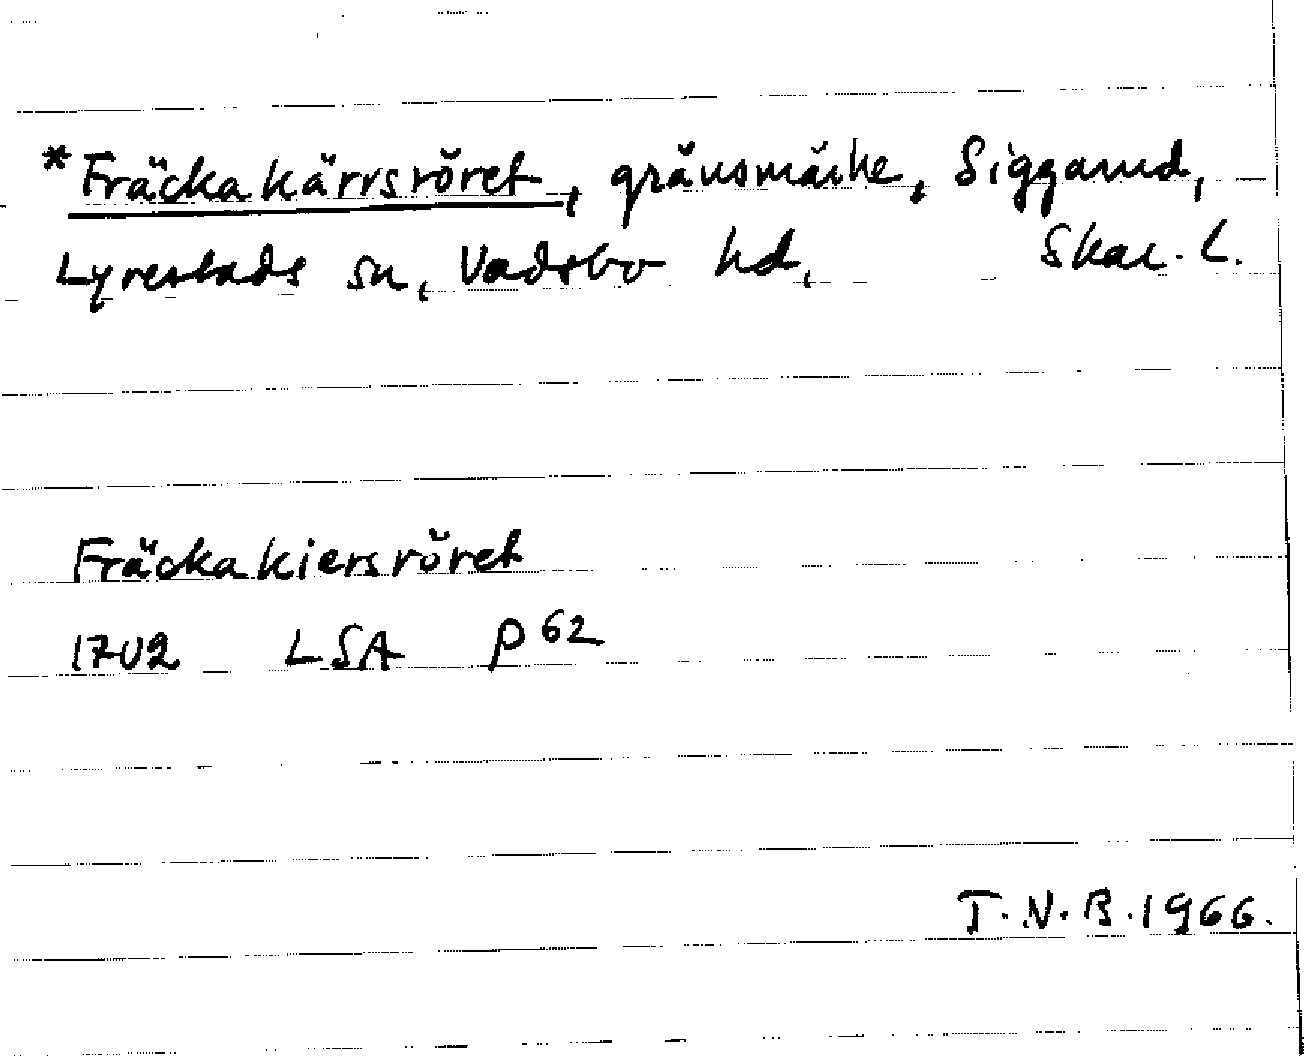 *Fräckakärrsröret, gränsmärke, Siggarud,
Lyrestads sn, Vadsbo hd, Skar. L.
Fräckakiersröret
1702 LSA P 62
T.N.B. 1966.